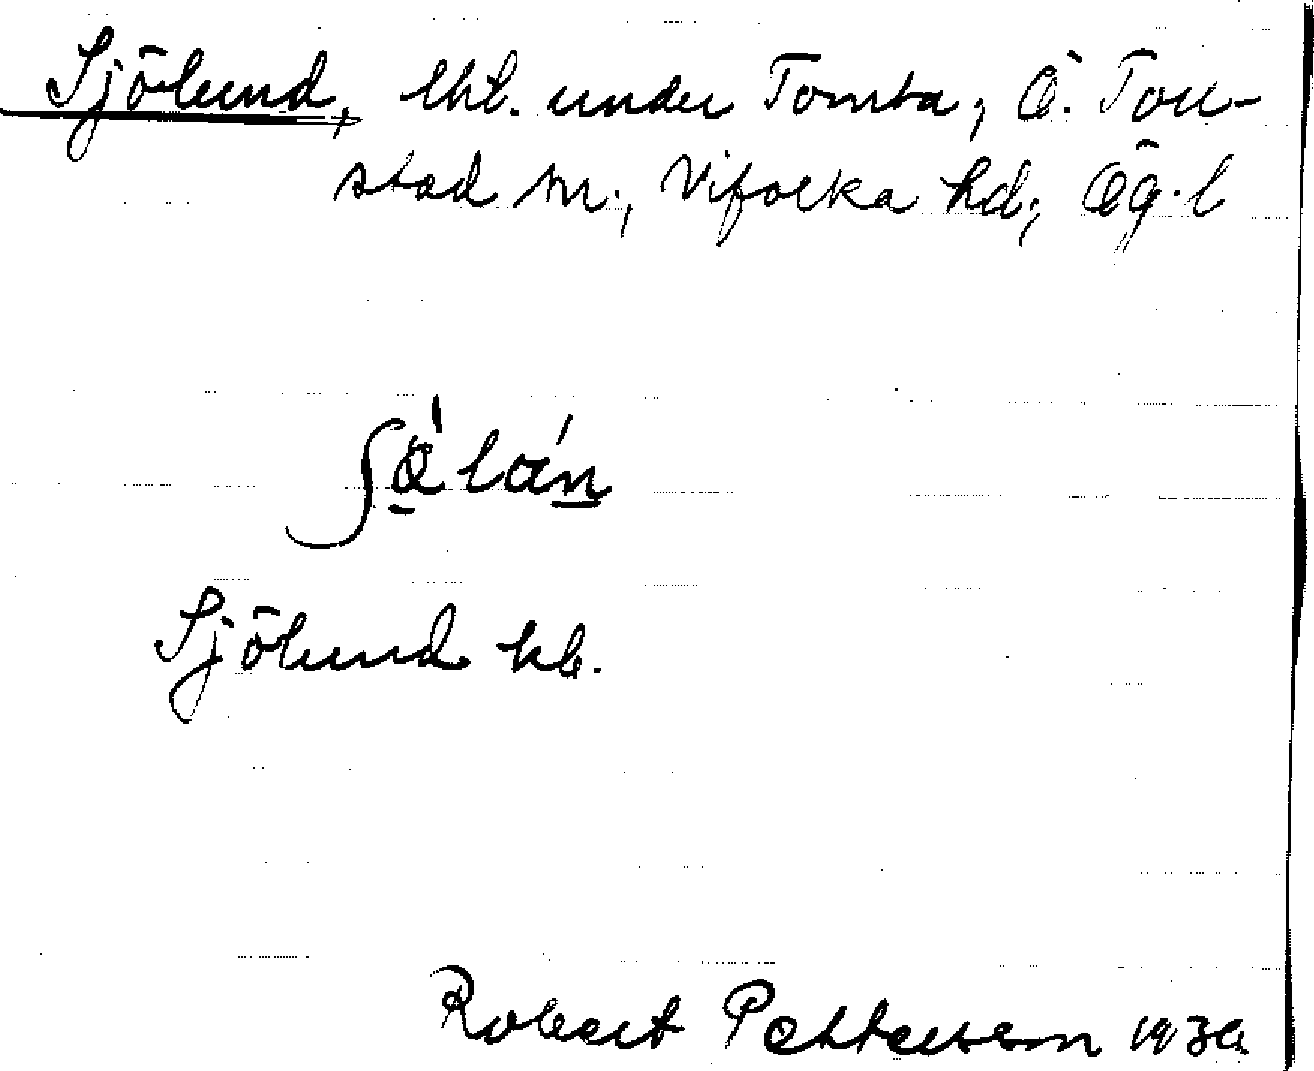 Sjölund, lht. under Tomta, Ö. Tol-
stad sn., Vifolka hd, Ög. l
Sjölund kb.
Robert Pettersson 193